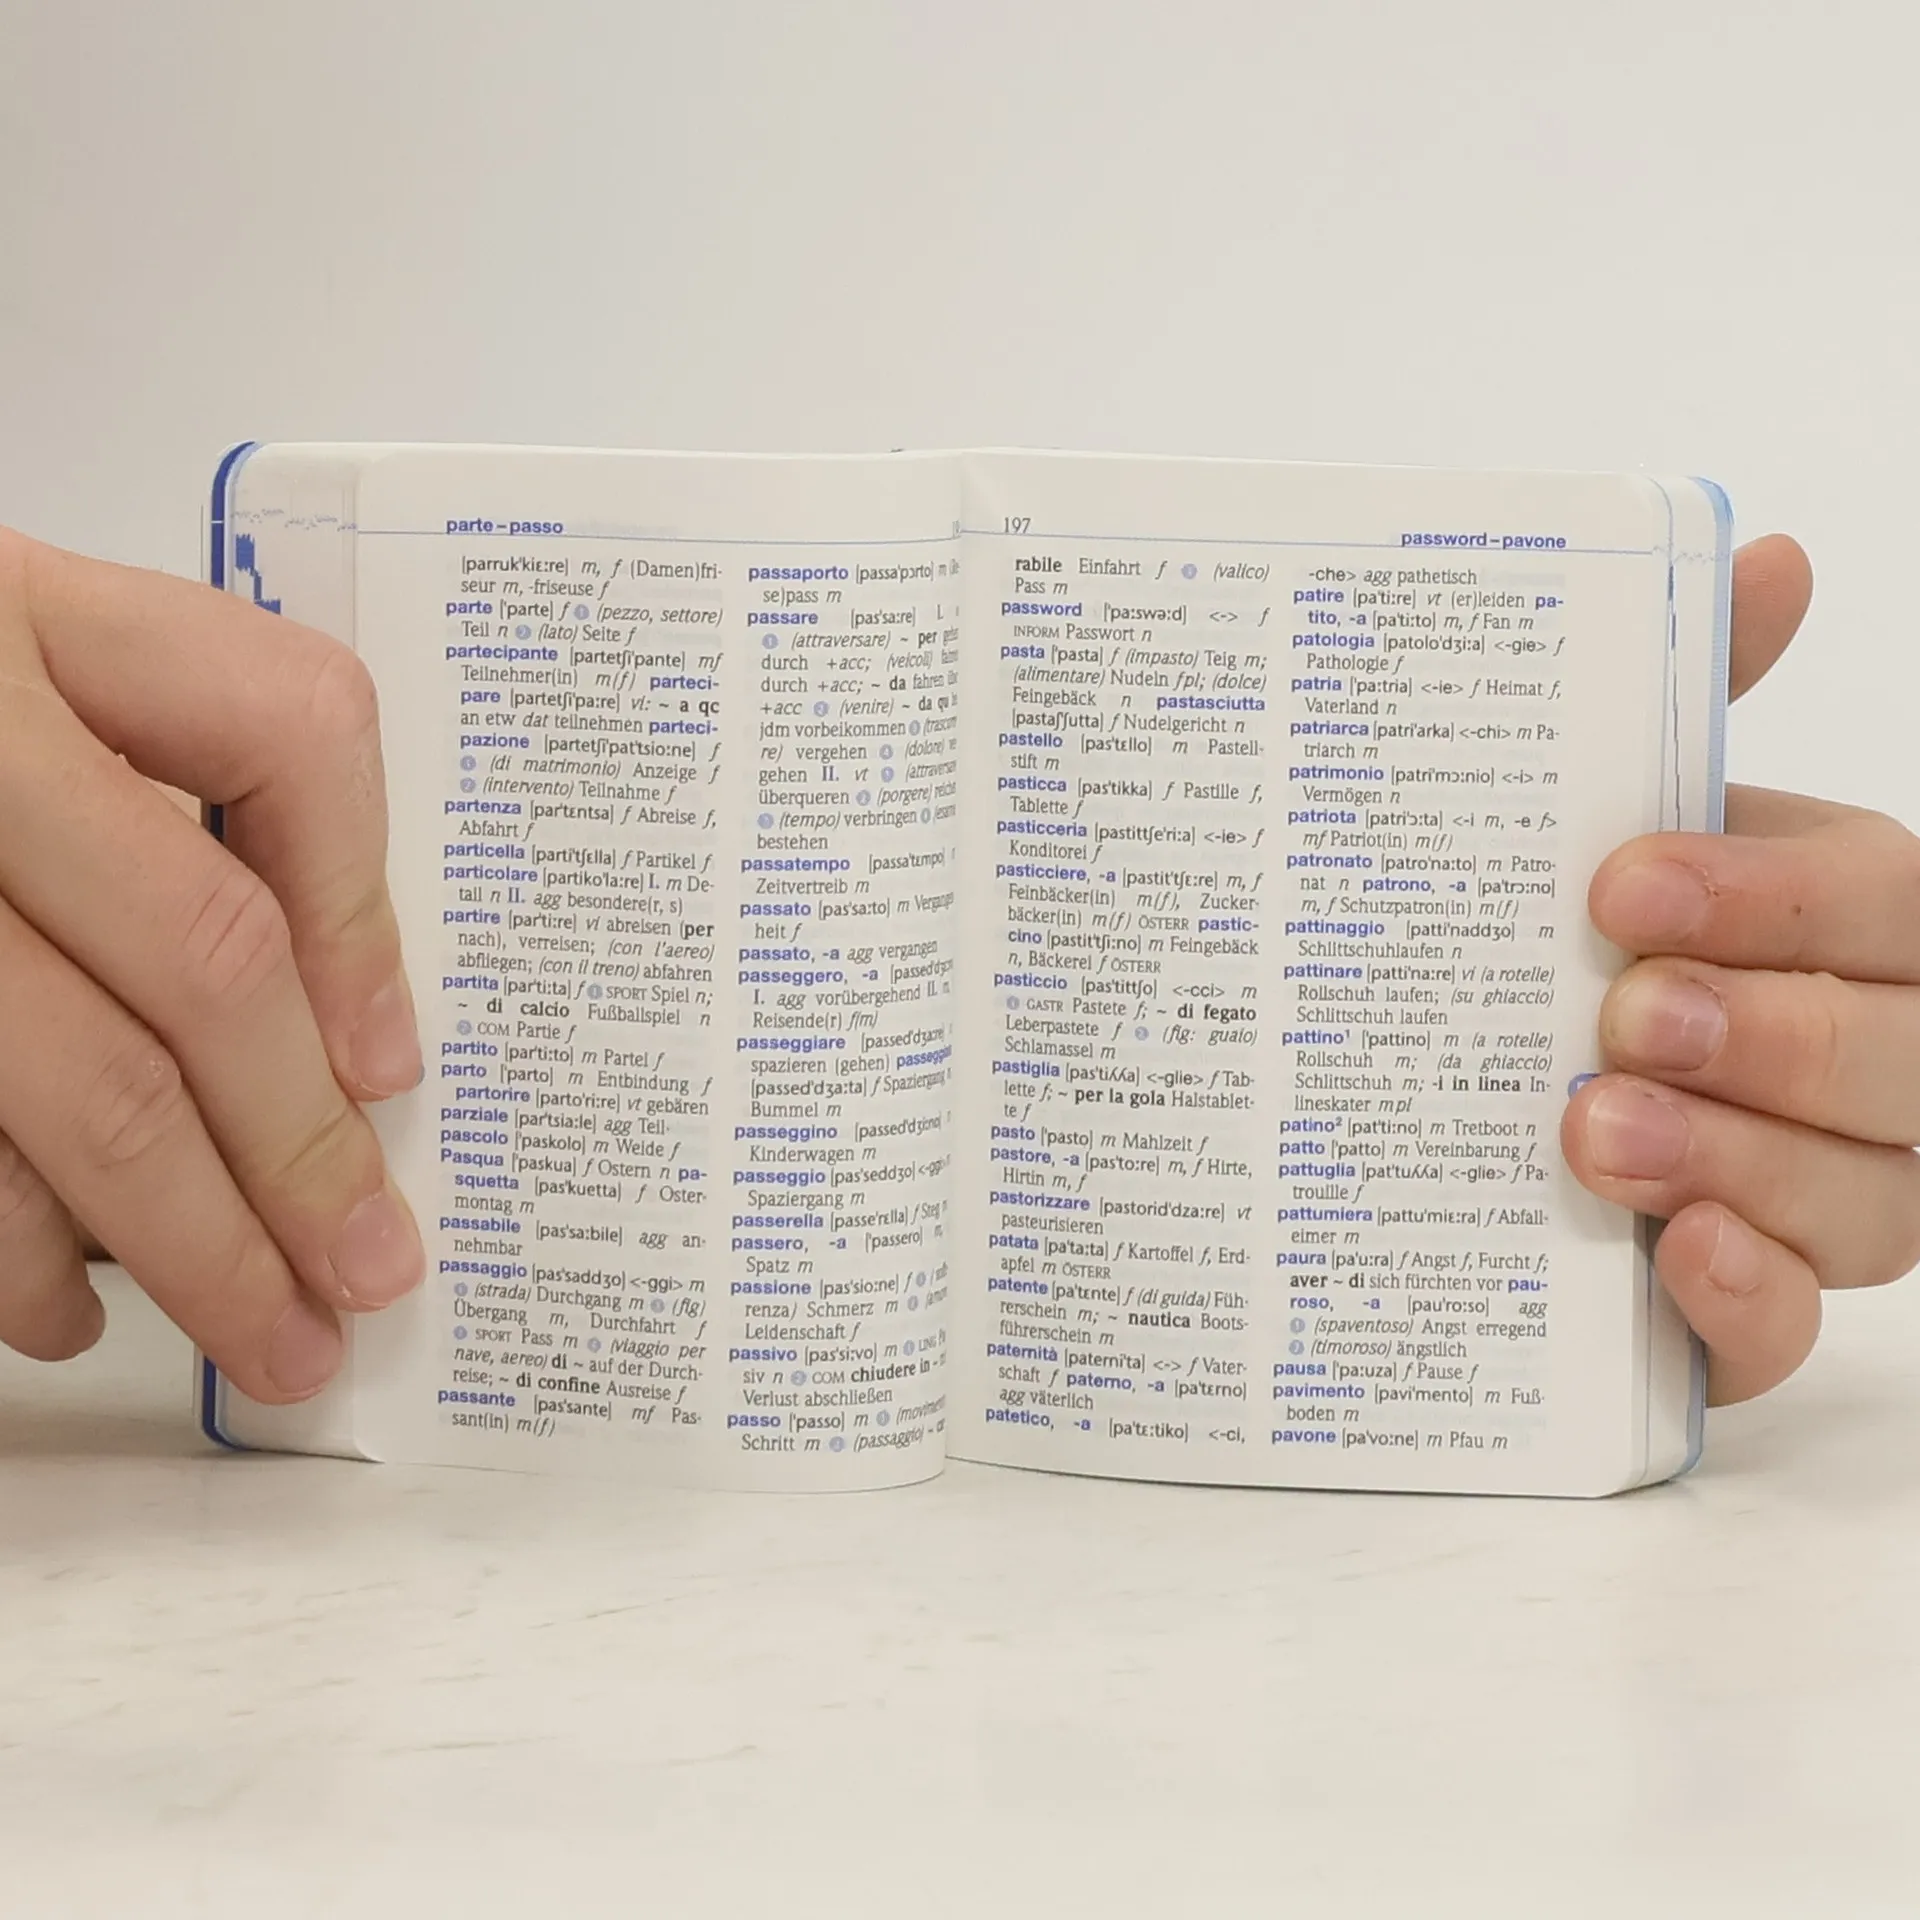 parte – passo
[parruk'kiɛːre] m, f (Damen)fri-
seur m, -friseuse f
parte ['parte] f ❶ (pezzo, settore)
Teil n ❷ (lato) Seite f
partecipante [partetʃi'pante] mf
Teilnehmer(in) m(f) parteci-
pare [partetʃi'paːre] vi: ~ a qc
an etw dat teilnehmen parteci-
pazione [partetʃi'pat'tsioːne] f
❶ (di matrimonio) Anzeige f
❷ (intervento) Teilnahme f
partenza [par'tɛntsa] f Abreise f,
Abfahrt f
particella [parti'tʃɛlla] f Partikel f
particolare [partiko'laːre] I. m De-
tail n II. agg besondere(r, s)
partire [par'tiːre] vi abreisen (per
nach), verreisen; (con l'aereo)
abfliegen; (con il treno) abfahren
partita [par'tiːta] f ❶ SPORT Spiel n;
~ di calcio Fußballspiel n
❷ COM Partie f
partito [par'tiːto] m Partei f
parto ['parto] m Entbindung f
partorire [parto'riːre] vt gebären
parziale [par'tsiaːle] agg Teil-
pascolo ['paskolo] m Weide f
Pasqua ['paskua] f Ostern n pa-
squetta [pas'kuetta] f Oster-
montag m
passabile [pas'saːbile] agg an-
nehmbar
passaggio [pas'saddʒo] <-ggi> m
❶ (strada) Durchgang m ❷ (fig)
Übergang m, Durchfahrt f
SPORT Pass m (viaggio per
nave, aereo) di ~ auf der Durch-
reise; ~ di confine Ausreise f
passante [pas'sante] mf Pas-
sant(in) m(f)
passaporto [passa'pɔrto] m
se)pass m
passare [pas'saːre] I.
❶ (attraversare) ~ per
durch +acc; (veicoli)
durch +acc; ~ da fahren
+acc ❷ (venire) ~ da qu
jdm vorbeikommen
re) vergehen ❹ (dolore)
gehen II. vt ❶
überqueren ❷ (porgere)
❸ (tempo) verbringen
bestehen
passatempo [passa'tɛmpo]
Zeitvertreib m
passato [pas'saːto] m Vergangen-
heit f
passato, -a agg vergangen
passeggero, -a
I. agg vorübergehend II.
Reisende(r) f(m)
passeggiare
spazieren (gehen)
[passed'dʒaːta] f Spaziergang
Bummel m
passeggino
Kinderwagen m
passeggio [pas'seddʒo]
Spaziergang m
passerella [passe'rɛlla] f Steg
passero, -a ['passero] m,
Spatz m
passione [pas'sioːne] f ❶
renza) Schmerz m ❷
Leidenschaft f
passivo [pas'siːvo] m ❶ LING
siv n ❷ COM chiudere in
Verlust abschließen
passo ['passo] m ❶
Schritt m ❷ (passaggio) ~
197
password – pavone
rabile Einfahrt f (valico)
Pass m
password ['paːswəːd] <-> f
INFORM Passwort n
pasta ['pasta] f (impasto) Teig m;
(alimentare) Nudeln fpl; (dolce)
Feingebäck n pastasciutta
[pastaʃʃutta] f Nudelgericht n
pastello [pas'tɛllo] m Pastell-
stift m
pasticca [pas'tikka] f Pastille f,
Tablette f
pasticceria [pastittʃe'riːa] <-ie> f
Konditorei f
pasticciere, -a [pastit'tʃɛːre] m, f
Feinbäcker(in) m(f), Zucker-
bäcker(in) m(f) ÖSTERR pastic-
cino [pastit'tʃiːno] m Feingebäck
n, Bäckerei f ÖSTERR
pasticcio [pas'tittʃo] <-cci> m
❶ GASTR Pastete f; ~ di fegato
Leberpastete f ❷ (fig: guaio)
Schlamassel m
pastiglia [pas'tiʎʎa] <-glie> f Tab-
lette f; ~ per la gola Halstablet-
te f
pasto ['pasto] m Mahlzeit f
pastore, -a [pas'toːre] m, f Hirte,
Hirtin m, f
pastorizzare [pastorid'dzaːre] vt
pasteurisieren
patata [pa'taːta] f Kartoffel f, Erd-
apfel m ÖSTERR
patente [pa'tɛnte] f (di guida) Füh-
rerschein m; ~ nautica Boots-
führerschein m
paternità [paterni'ta] <-> f Vater-
schaft f paterno, -a [pa'tɛrno]
agg väterlich
patetico, -a [pa'tɛːtiko] <-ci,
-che> agg pathetisch
patire [pa'tiːre] vt (er)leiden pa-
tito, -a [pa'tiːto] m, f Fan m
patologia [patolo'dʒiːa] <-gie> f
Pathologie f
patria ['paːtria] <-ie> f Heimat f,
Vaterland n
patriarca [patri'arka] <-chi> m Pa-
triarch m
patrimonio [patri'mɔːnio] <-i> m
Vermögen n
patriota [patri'ɔːta] <-i m, -e f>
mf Patriot(in) m(f)
patronato [patro'naːto] m Patro-
nat n patrono, -a [pa'trɔːno]
m, f Schutzpatron(in) m(f)
pattinaggio [patti'naddʒo] m
Schlittschuhlaufen n
pattinare [patti'naːre] vi (a rotelle)
Rollschuh laufen; (su ghiaccio)
Schlittschuh laufen
pattino¹ ['pattino] m (a rotelle)
Rollschuh m; (da ghiaccio)
Schlittschuh m; -i in linea In-
lineskater mpl
patino² [pat'tiːno] m Tretboot n
patto ['patto] m Vereinbarung f
pattuglia [pat'tuʎʎa] <-glie> f Pa-
trouille f
pattumiera [pattu'miɛːra] f Abfall-
eimer m
paura [pa'uːra] f Angst f, Furcht f;
aver ~ di sich fürchten vor pau-
roso, -a [pau'roːso] agg
❶ (spaventoso) Angst erregend
❷ (timoroso) ängstlich
pausa ['paːuza] f Pause f
pavimento [pavi'mento] m Fuß-
boden m
pavone [pa'voːne] m Pfau m